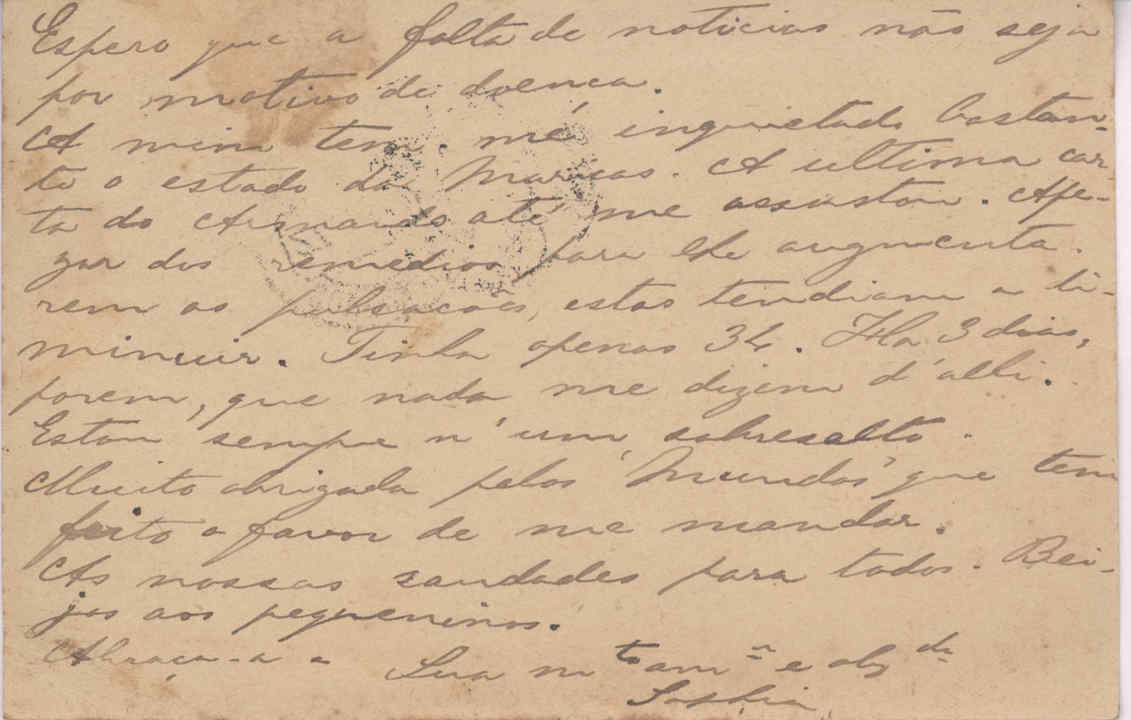 Espero que a falta de noticias não seja
por motivo de doença.
A mim tem-me inquietado bastan-
te o estado da Maricas. A ultima car-
ta do Armando até me assustou. Ape-
zar dos remedios para lhe augmenta-
rem as pulsações, estas tendiam a di-
minuir. Tinha apenas 34. Ha 3 dias,
porem, que nada me dizem d'alli.
Estou sempre n'um sobresalto.
Muito obrigada pelos "Mundos" que tem
feito o favor de me mandar.
As nossas saudades para todos. Bei-
jos aos pequeninos.
Abraça-a a Sua mto amª e obgda
Sophia